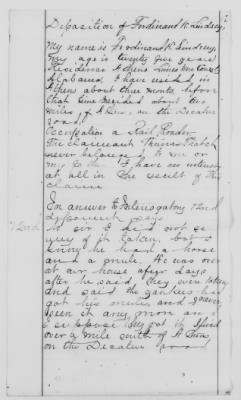 Deposition of Ferdinand R Lindsey
My name is Ferdinand R Lindsey
my age is twenty five years
Residence Athens Limestone County
Alabama I have resided in
Athens about three months before
that time resided about two
miles of Athens, on the Decatur
road
Occupation a Rail Roader
The claimant Thomas
never belonged to me or
my I have no interest
at all in the result of this
claim
En answer to Interrogatory 72nd
deponent says
72nd No sir I did not see
any of it taken, but I
know he had a horse
and a mule. He was over
at our house after days
after he said they were taken
and said the yankees had
got his mule, and I never
seen it any more and
I suppose they got it I lived
over a mile south of Athens
on the Decatur road